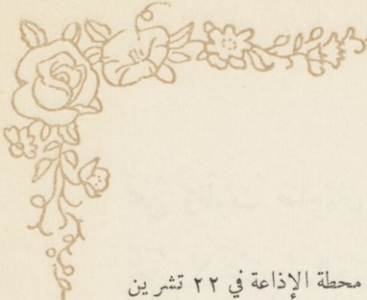 محطة الإذاعة في ٢٢ تشرين